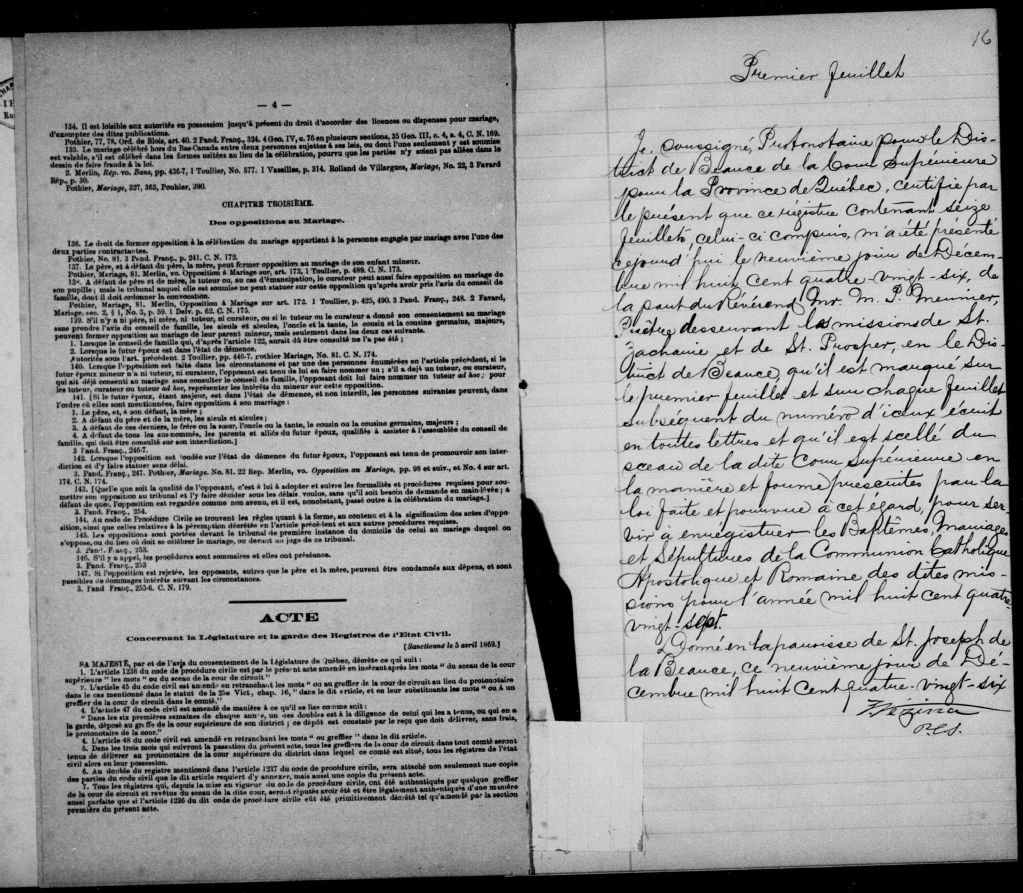 — 4 —
134. Il est loisible aux autorités en possession jusqu'à présent du droit d'accorder des licences ou dispenses pour mariage,
d'exempter des dites publications.
Pothier, 77, 78, Ord. de Blois, art. 40. 2 Pand. Franç., 324. 4 Geo. IV, c. 76 en plusieurs sections, 35 Geo. III, c. 4, s. 4, C. N. 169.
135. Le mariage célébré hors du Bas-Canada entre deux personnes sujettes à ses lois, ou dont l'une seulement y est soumise
est valable, s'il est célébré dans les formes usitées au lieu de la célébration, pourvu que les parties n'y soient pas allées dans le
dessin de faire fraude à la loi.
2. Merlin, Rép. vo. Bans, pp. 436-7, 1 Toullier, No. 577. 1 Vazilles, p. 314. Rolland de Villargues, Mariage, No. 22, 3 Favard
Rép., p. 30.
Pothier, Mariage, 327, 363, Pouhier, 390.
CHAPITRE TROISIÈME.
Des oppositions au Mariage.
136. Le droit de former opposition à la célébration du mariage appartient à la personne engagée par mariage avec l'une des
deux parties contractantes.
Pothier, No. 81. 3 Pand. Franç., p. 241. C. N. 172.
137. Le père, et à défaut du père, la mère, peut former opposition au mariage de son enfant mineur.
Pothier, Mariage, 81. Merlin, vo. Opposition à Mariage sur, art. 173, 1 Toullier, p. 489. C. N. 173.
138. A défaut de père et de mère, le tuteur ou, au cas d'émancipation, le curateur peut aussi faire opposition au mariage de
son pupille; mais le tribunal auquel elle est soumise ne peut statuer sur cette opposition qu'après avoir pris l'avis du conseil de
famille, dont il doit ordonner la convocation.
Pothier, Mariage, 81, Merlin, Opposition à Mariage sur art. 172. 1 Toullier, p. 425, 490. 3 Pand. Franç., 248. 2 Favard,
Mariage, sec. 2, § 1, No. 3, p. 59. 1 Delv. p. 62. C. N. 175.
139. S'il n'y a ni père, ni mère, ni tuteur, ni curateur, ou si le tuteur ou le curateur a donné son consentement au mariage
sans prendre l'avis du conseil de famille, les aieuls et aieules, l'oncle et la tante, le cousin et la cousine germains, majeurs,
peuvent former opposition au mariage de leur parent mineur, mais seulement dans les deux cas suivants.
1. Lorsque le conseil de famille qui, d'après l'article 122, aurait dû être consulté ne l'a pas été;
2. Lorsque le futur époux est dans l'état de démence.
Autorités sous l'art. précédent 2 Toullier, pp. 446-7. Pothier Mariage, No. 81. C. N. 174.
140. Lorsque l'opposition est faite dans les circonstances et par une des personnes énumérées en l'article précédent, si le
futur époux mineur n'a ni tuteur, ni curateur, l'opposant est tenu de lui en faire nommer un; s'il a déjà un tuteur, ou curateur,
qui ait déjà consenti au mariage sans consulter le conseil de famille, l'opposant doit lui faire nommer un tuteur ad hoc; pour
les tuteur, curateur ou tuteur ad hoc, représenter les intérêts du mineur sur cette opposition.
141. [Si le futur époux, étant majeur, est dans l'état de démence, et non interdit, les personnes suivantes peuvent, dans
l'ordre où elles sont mentionnées, faire opposition à son mariage:
1. Le père, et, à son défaut, la mère;
2. A défaut du père et de la mère, les aieuls et aieules;
3. A défaut de ces derniers, le frère ou la sœur, l'oncle ou la tante, le cousin ou la cousine germains, majeurs;
4. A défaut de tous les sus-nommés, les parents et alliés du futur époux, qualifiés à assister à l'assemblée du conseil de
famille, qui doit être consulté sur son interdiction.]
3 Pand. Franç., 246-7.
142. Lorsque l'opposition est fondée sur l'état de démence du futur époux, l'opposant est tenu de promouvoir son inter-
diction et d'y faire statuer sans délai.
3. Pand. Franç., 247. Pothier, Mariage. No. 81. 22 Rep. Merlin, vo. Opposition au Mariage, pp. 98 et suiv., et No. 4 sur art.
174. C. N. 174.
143. [Quelle que soit la qualité de l'opposant, c'est à lui à adopter et suivre les formalités et procédures requises pour sou-
mettre son opposition au tribunal et l'y faire décider sous les délais voulus, sans qu'il soit besoin de demande en main-levée; à
défaut de quoi, l'opposition est regardée comme non avenu, et il est, nonobstant, passé outre à la célébration du mariage.]
3. Pand. Franç., 254.
144. Au code de Procédure Civile se trouvent les règles quant à la forme, au contenu et à la signification des actes d'oppo-
sition, ainsi que celles relatives à la péremption décrétée en l'article précédent et aux autres procédures requises.
145. Les oppositions sont portées devant le tribunal de première instance du domicile de celui au mariage duquel on
s'oppose, ou du lieu où doit se célébrer le mariage, ou devant un juge de ce tribunal.
3. Pand. Franç., 253.
146. S'il y a appel, les procédures sont sommaires et elles ont préséance.
3. Pand. Franç., 253
147. Si l'opposition est rejetée, les opposants, autres que le père et la mère, peuvent être condamnés aux dépens, et sont
passibles de dommages intérêts suivant les circonstances.
3. Pand Franç., 255-6. C. N. 179.
ACTE
Concernant la Législature et la garde des Registres de l'Etat Civil.
[Sanctionné le 5 avril 1869.]
SA MAJESTÉ, par et de l'avis du consentement de la Législature de Québec, décrète ce qui suit:
1. L'article 1236 du code de procédure civile est par le présent acte amendé en insérant après les mots "du sceau de la cour
supérieure" les mots "ou du sceau de la cour de circuit."
2. L'article 45 du code civil est amendé en retranchant les mots "ou au greffier de la cour de circuit au lieu du protonotaire
dans le cas mentionné dans le statut de la 25e Vict., chap. 16," dans le dit article, et en leur substituant les mots "ou à un
greffier de la cour de circuit dans le comté."
3. L'article 47 du code civil est amendé de manière à ce qu'il se lise comme suit:
"Dans les six premières semaines de chaque année, un des doubles est à la diligence de celui qui les a tenus, ou qui en a
la garde, déposé au greffe de la cour supérieure de son district; ce dépôt est constaté par le reçu que doit délivrer, sans frais,
le protonotaire de la cour."
4. L'article 48 du code civil est amendé en retranchant les mots "ou greffier" dans le dit article.
5. Dans les trois mois qui suivront la passation du présent acte, tous les greffiers de la cour de circuit dans tout comté seront
tenus de délivrer au protonotaire de la cour supérieure du district dans lequel ce comté est situé, tous les registres de l'état
civil alors en leur possession.
6. Au double du registre mentionné dans l'article 1237 du code de procédure civile, sera attaché non seulement une copie
des parties du code civil que le dit article requiert d'y annexer, mais aussi une copie du présent acte.
7. Tous les registres qui, depuis la mise en vigueur du code de procédure civile, ont été authentiqués par quelque greffier
de la cour de circuit et revêtus du sceau de la dite cour, seront réputés avoir été et être légalement authentiqués d'une manière
aussi parfaite que si l'article 1236 du dit code de procédure civile eût été primitivement décrété tel qu'amendé par la section
première du présent acte.
16
Premier feuillet
Je, soussigné, Protonotaire pour le Dis-
trict de Beauce de la Cour Supérieure
pour la Province de Québec, certifie par
le présent que ce régistre contenant seize
feuillets, celui-ci compris, m'a été présenté
cejourd'hui le neuvième jour de Décem-
bre mil huit cent quatre-vingt-six, de
la part du Révérend Mr. M. P. Meunier,
Prêtre desservant les missions de St.
Zacharie et de St. Prosper, en le Dis-
trict de Beauce, qu'il est marqué sur
le premier feuillet et sur chaque feuillet
subséquent du numéro d'iceux écrit
en toutes lettres et qu'il est scellé du
sceau de la dite Cour Supérieure en
la manière et forme prescrites par la
loi faite et pourvue à cet égard, pour ser-
vir à enregistrer les Baptêmes, Mariages
et Sépultures de la Communion Catholique
Apostolique et Romaine des dites mis-
sions pour l'année mil huit cent quatre-
vingt-sept.
Donné en la paroisse de St. Joseph de
la Beauce, ce neuvième jour de Dé-
cembre mil huit cent quatre-vingt-six
Vézina
P.C.S.